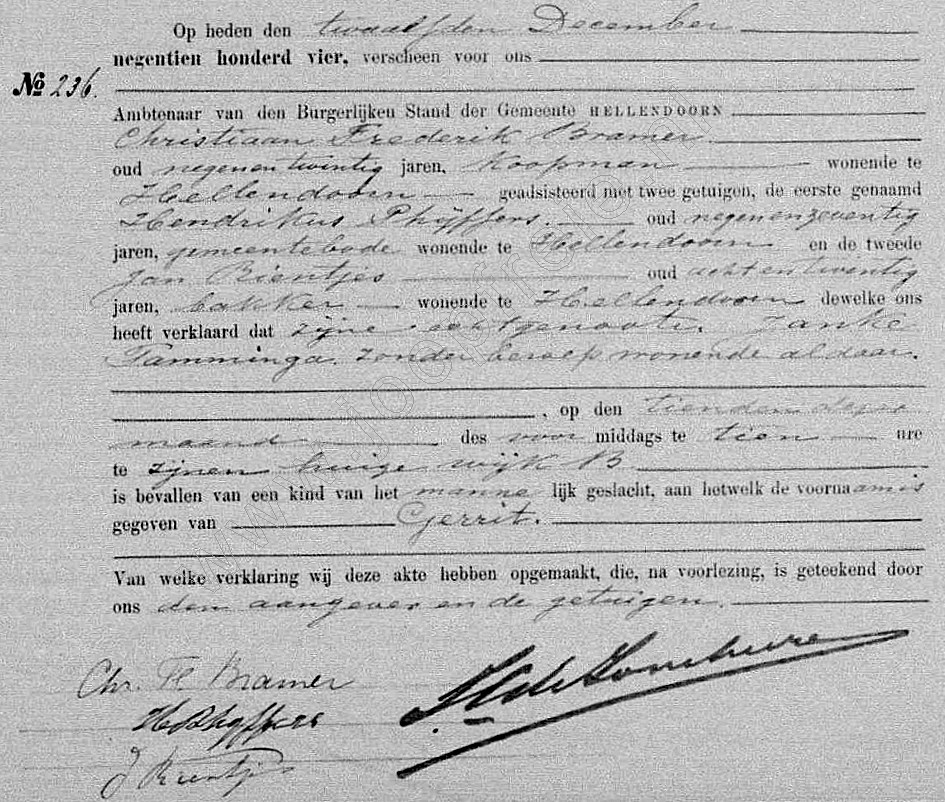 Op heden den twaalfden December
negentien honderd vier, verscheen voor ons
No 236.
Ambtenaar van den Burgerlijken Stand der Gemeente HELLENDOORN
Christiaan Frederik Bramer
oud negenentwintig jaren, Koopman wonende te
Hellendoorn geadsisteerd met twee getuigen, de eerste genaamd
Hendrikus Phijffers oud negenenzeventig
jaren, gemeentebode wonende te Hellendoorn en de tweede
Jan Rientjes oud achtentwintig
jaren, bakker wonende te Hellendoorn dewelke ons
heeft verklaard dat zijne echtgenoote, Janke
Tamminga, zonder beroep wonende aldaar.
, op den tienden dezer
maand des voor middags te tien ure
te zijnen huize wijk B
is bevallen van een kind van het manne lijk geslacht, aan hetwelk de voornaam is
gegeven van Gerrit.
Van welke verklaring wij deze akte hebben opgemaakt, die, na voorlezing, is geteekend door
ons den aangever en de getuigen.
Chr. Fr Bramer
H Phijffers
J Rientjes